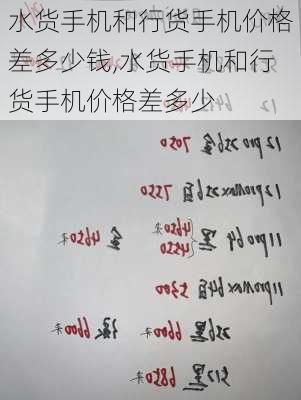 水货手机和行货手机价格
差多少钱,水货手机和行
货手机价格差多少
12 pro 256金 7050
12promax256白 7550
11pro 64 黑 4650未 金 4650未
4550
11promax64白 5300
256黑 6600未 银 6600未
512黑 6850未